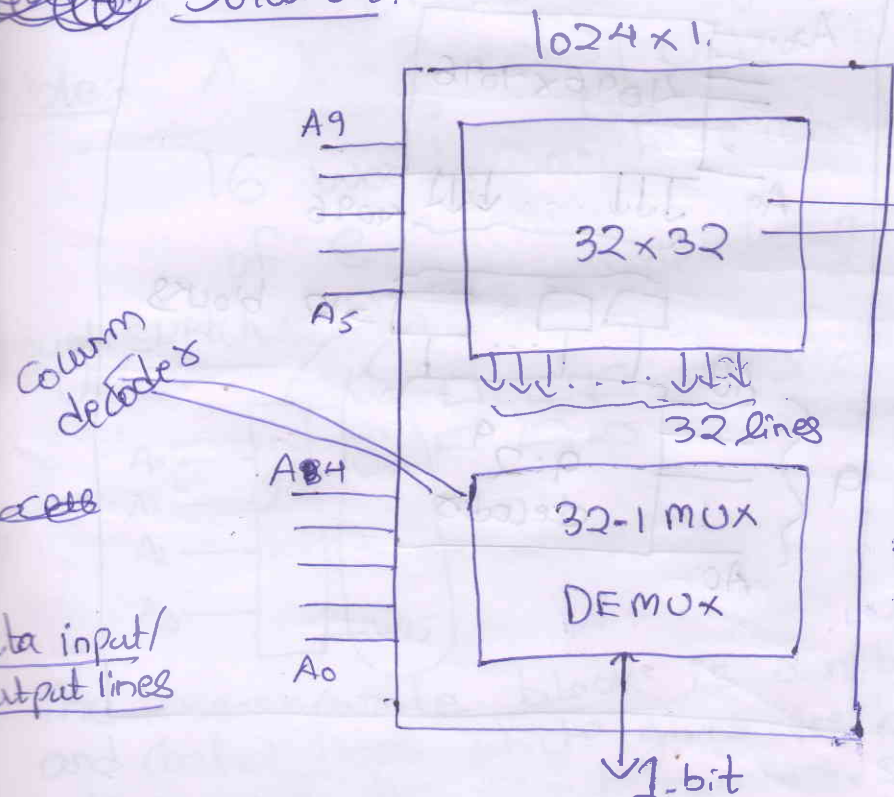 1024 x 1.
A9
32 x 32
A5
column
decoder
32 lines
A4
32-1 MUX
DEMUX
ta input/
tput lines
A0
1-bit